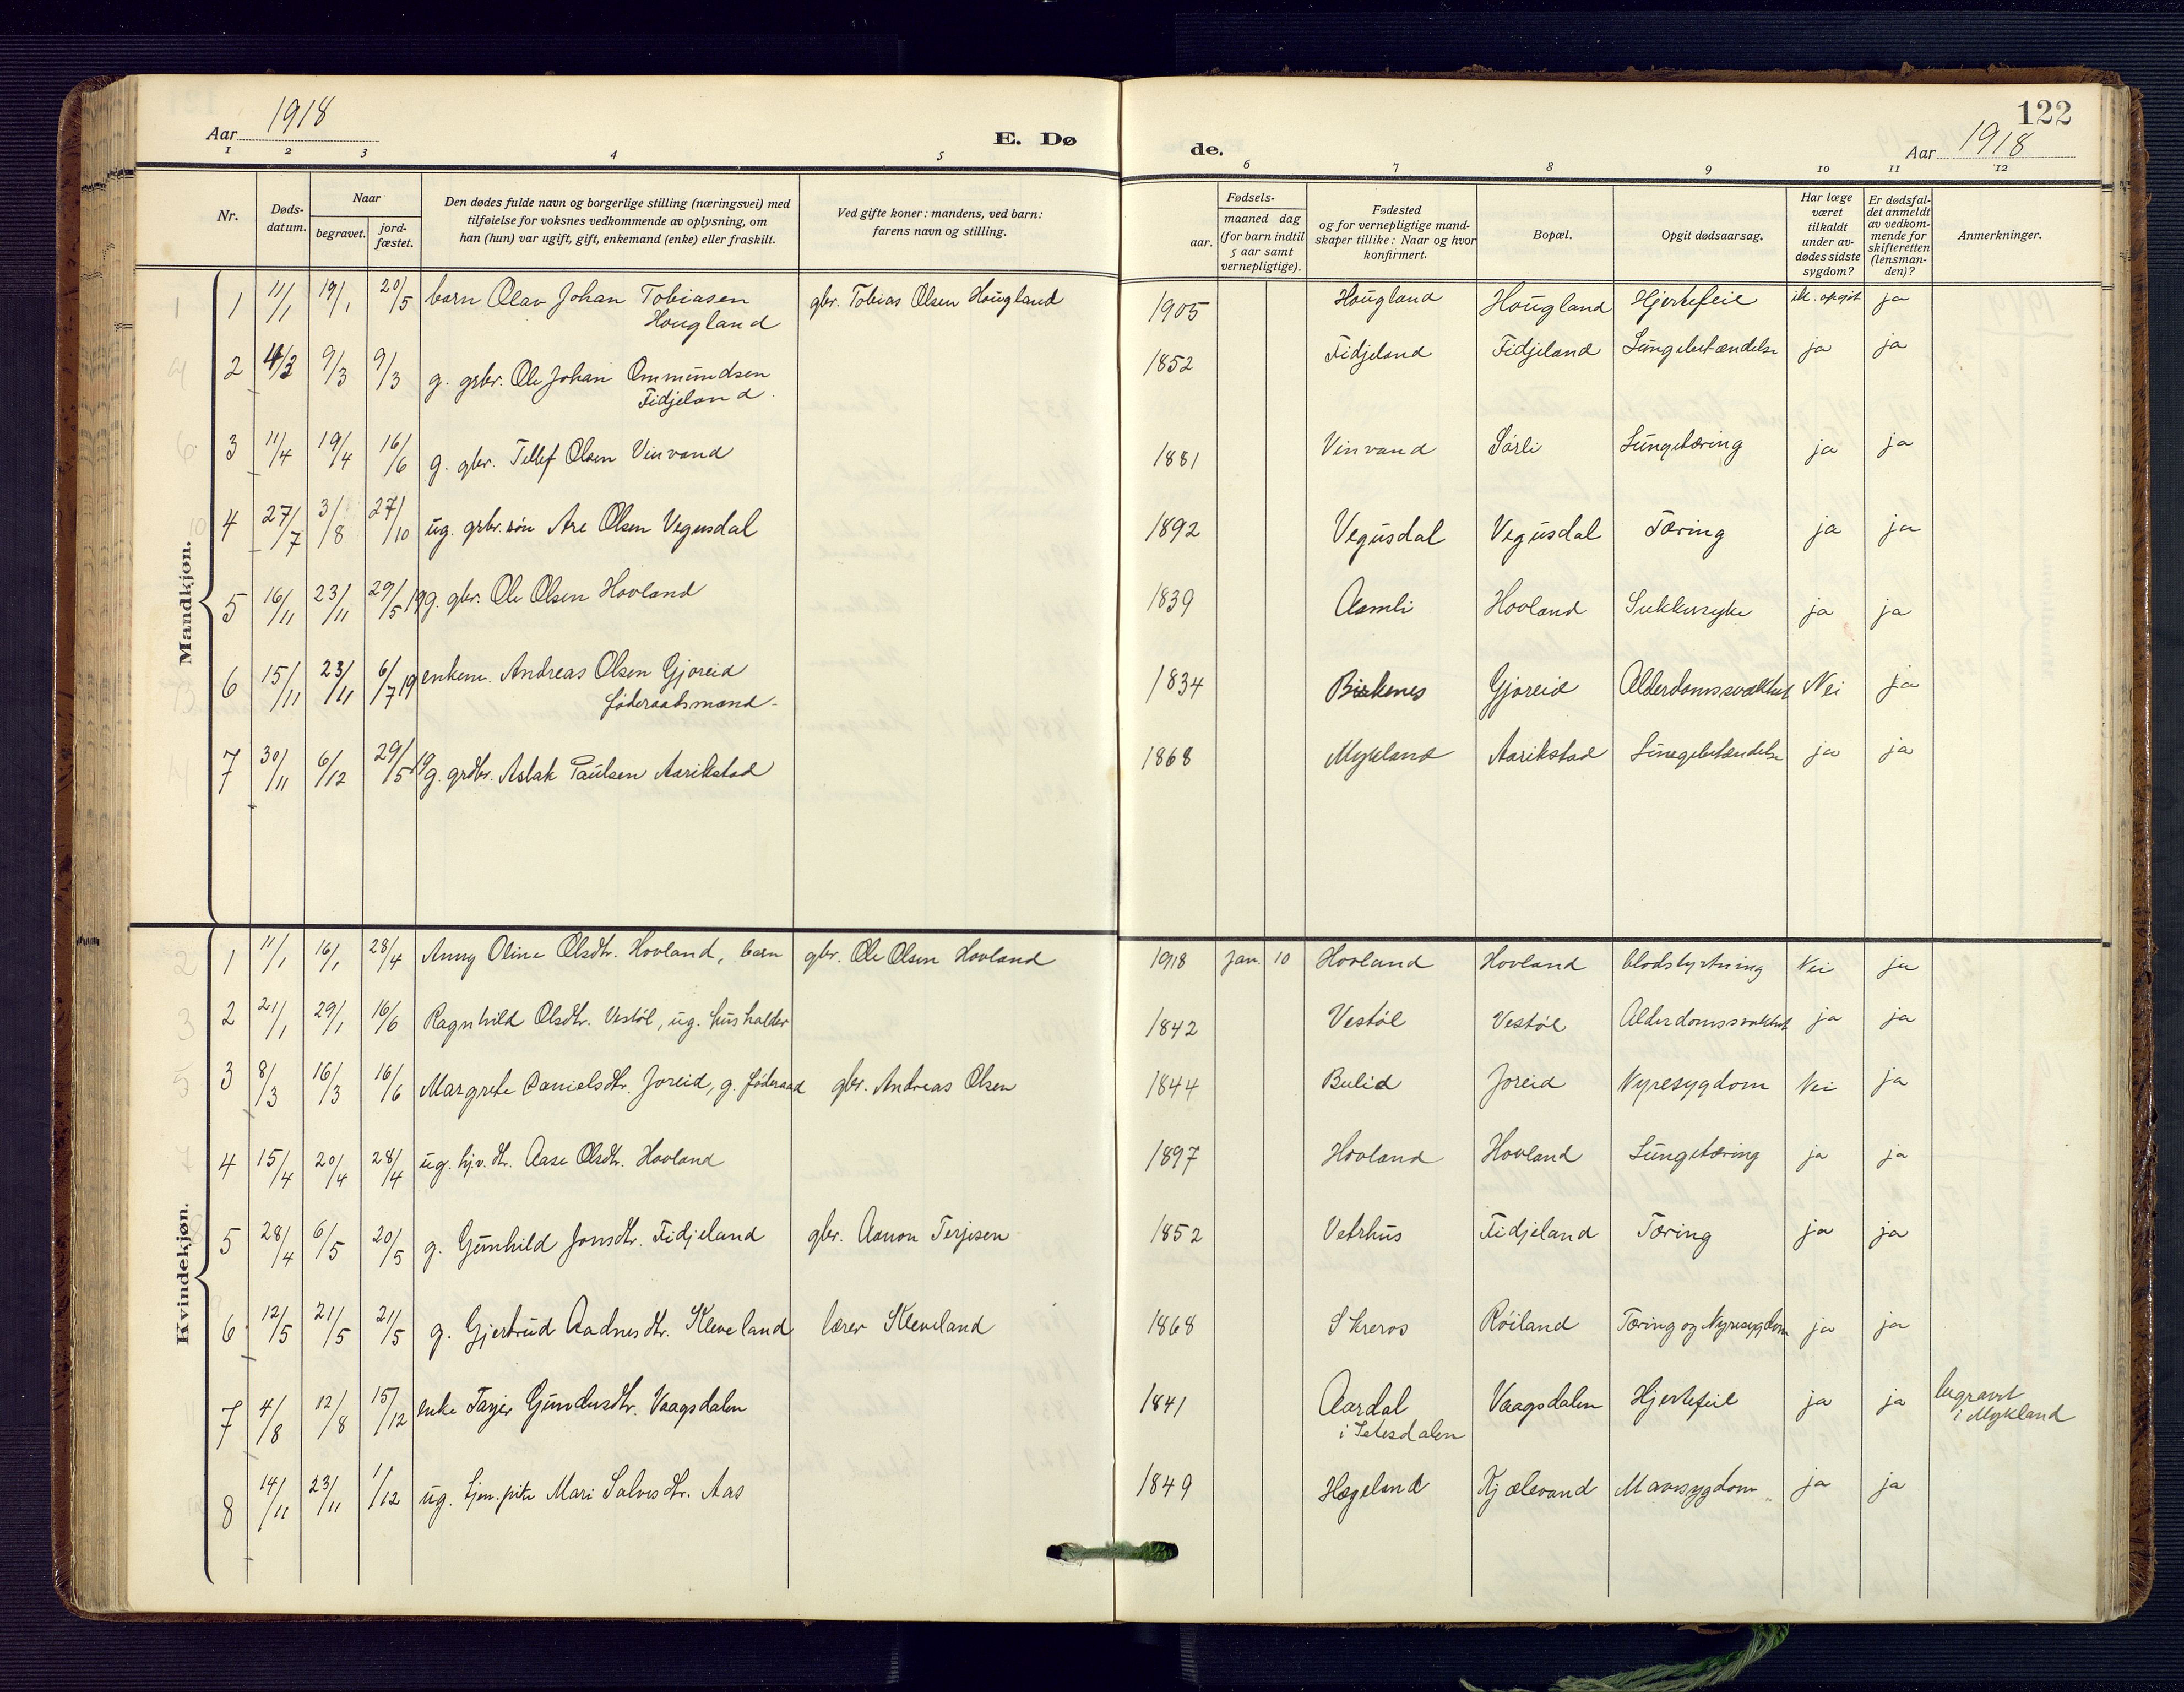 Aar 1918
E. Dø
de.
122
Aar 1918
1 2 3 4 5 6 7 8 9 10 11 12
Nr.
Døds-datum.
Naar
begravet.
jord-fæstet.
Den dødes fulde navn og borgerlige stilling (næringsvei) med
tilføielse for voksnes vedkommende av oplysning, om
han (hun) var ugift, gift, enkemand (enke) eller fraskilt.
Ved gifte koner: mandens, ved barn:
farens navn og stilling.
Fødsels-
aar.
maaned dag
(for barn indtil
5 aar samt
vernepligtige).
Fødested
og for vernepligtige mand-
skaper tillike: Naar og hvor
konfirmert.
Bopæl.
Opgit dødsaarsag.
Har læge
været
tilkaldt
under av-
dødes sidste
sygdom?
Er dødsfal-
det anmeldt
av vedkom-
mende for
skifteretten
(lensman-
den)?
Anmerkninger.
Mandkjøn.
1 11/1 19/1 20/5 barn Olav Johan Tobiasen Hougland gbr. Tobias Olsen Hougland 1905 Hougland Hougland Hjertefeil ik. opgit ja
2 4/3 9/3 9/3 g. grbr. Ole Johan Ommundsen Fidjeland. 1852 Fidjeland Fidjeland Lungebetændelse ja ja
3 11/4 19/4 16/6 g. gbr. Tellef Olsen Vinvand 1881 Vinvand Sórli Lungetæring ja ja
4 27/7 3/8 27/10 ug. grbr. søn Are Olsen Vegusdal 1892 Vegusdal Vegusdal Tæring ja ja
5 16/11 23/11 29/5 19 g. gbr. Ole Olsen Hovland 1839 Aamli Hovland Sukkersyke ja ja
6 15/11 23/11 6/7 19 enkem. Andreas Olsen Gjoreid føderaadsmand. 1834 Birkenes Gjoreid Alderdomssvakhet Nei ja
7 30/11 6/12 29/5 19 g. grdbr. Aslak Paulsen Aarikstad 1868 Mykland Aarikstad Lungebetændelse ja ja
Kvindekjøn.
1 11/1 16/1 28/4 Anny Oline Olsdtr. Hovland, barn gbr. Ole Olsen Hovland 1918 Jan. 10 Hovland Hovland blodstyrtning Nei ja
2 21/1 29/1 16/6 Ragnhild Olsdtr. Vestøl, ug. husholder 1842 Vestøl Vestøl Alderdomssvakhet ja ja
3 8/3 16/3 16/6 Margrete Danielsdtr. Joreid, g. føderaad gbr. Andreas Olsen 1844 Bulid Joreid Nyresygdom Nei ja
4 15/4 20/4 28/4 ug. hjv. dtr. Aase Olsdtr. Hovland 1897 Hovland Hovland Lungetæring ja ja
5 28/4 6/5 20/5 g. Gunhild Jonsdtr. Fidjeland gbr. Aanon Terjesen 1852 Vetrhus Fidjeland Tæring ja ja
6 12/5 21/5 21/5 g. Gjertrud Aadnesdtr. Kleveland lærer Kleveland 1868 Skreros Røiland Tæring og Nyresygdom ja ja
7 4/8 12/8 15/12 enke Gundersdtr. Vaagsdalen 1841 Aardal i Setesdalen Vaagsdalen Hjertefeil ja ja begravet i Mykland
8 14/11 23/11 1/12 ug. Mari Salvesdtr. Aas 1849 Hægeland Kjælevand Mavesygdom ja ja